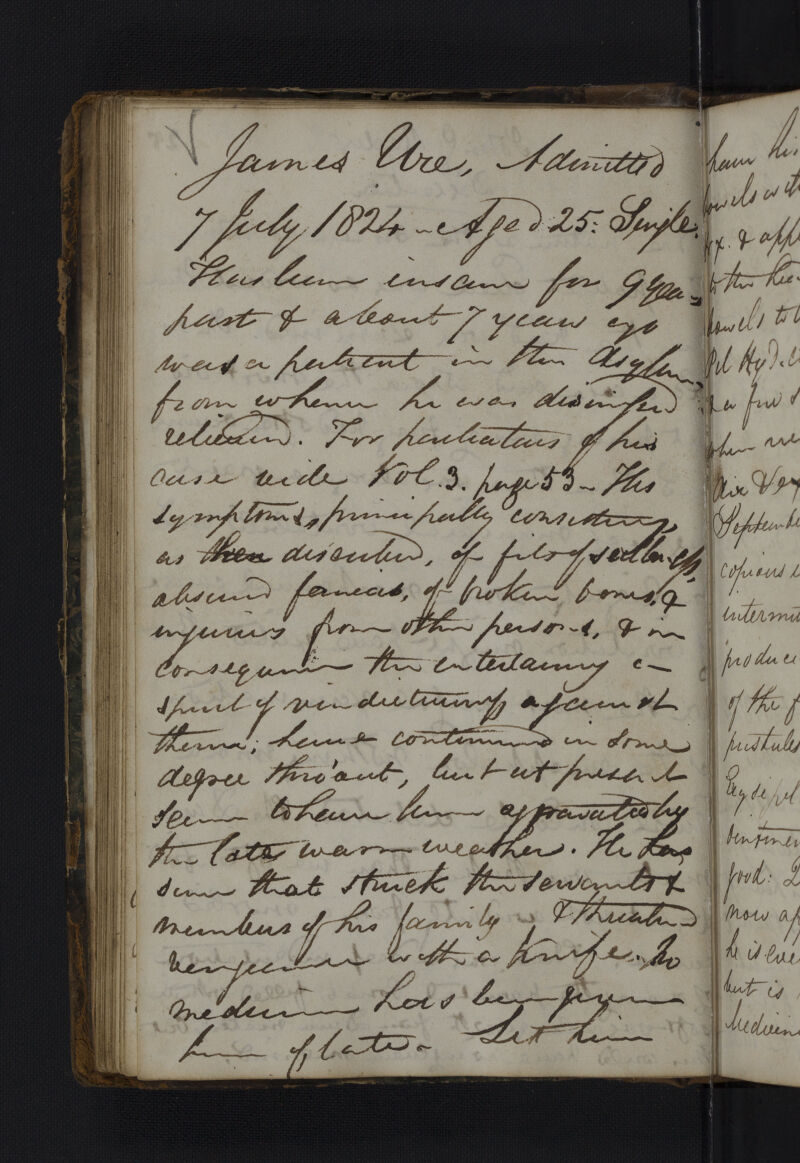 James Ure, Admitted
7 July 1824 - Aged 25: Single.
Has been insane for 9 years
past & about 7 years ago
was a patient in the Asylum
from whence he was dismissed
relieved. For particulars of his
case vide Vol. 3. page 53 - His
symptoms, principally consisting
as then described, of fits of sullenness,
absurd fancies, of broken bones, &
injuries from other persons, & in
consequence the entertaining a
spirit of vindictiveness against
them; have continued in some
degree thro'out, but at present
seem to have been aggravated by
the late warm weather. He has
since that struck the servants &
members of his family & threatened
vengeance with a knife. No
medicine has been given
him of late. Let him
have his
bowels
& app
to the hea
bowels to b
Pil Hyd.
a few d
when
Septembe
copious
intermit
produce
of the f
pustules
Erysipel
ointmen
good:
now af
he is eve
but is
Medicin